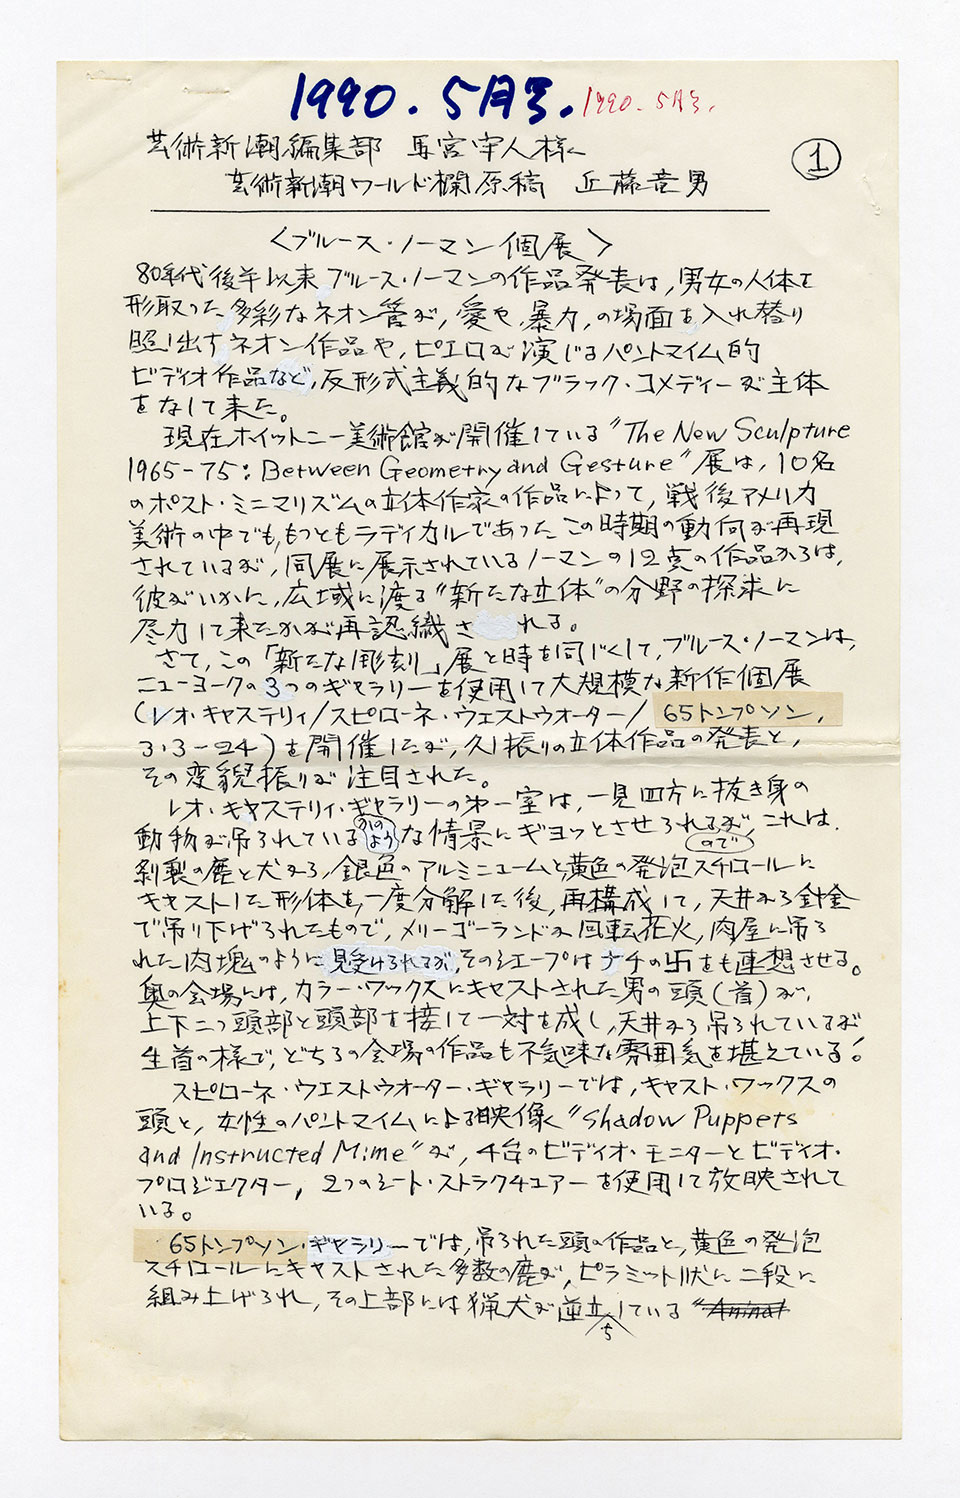 1990. 5月号. 1990. 5月号.
芸術新潮編集部 馬宮守人様 ①
芸術新潮ワールド欄原稿 近藤竜男
〈ブルース・ノーマン個展〉
80年代後半以来ブルース・ノーマンの作品発表は,男女の人体を
形取った多彩なネオン管が,愛や,暴力,の場面を入れ替り
照し出すネオン作品や,ピエロが演じるパントマイム的
ビディオ作品など,反形式主義的なブラック・コメディーが主体
をなして来た。
現在ホイットニー美術館が開催している“The New Sculpture
1965-75: Between Geometry and Gesture”展は,10名
のポスト・ミニマリズムの立体作家の作品によって,戦後アメリカ
美術の中でも,もっともラディカルであったこの時期の動向が再現
されているが,同展に展示されているノーマンの12点の作品からは,
彼がいかに,広域に渡る“新たな立体”の分野の探求に
尽力して来たかが再認織される。
さて,この「新たな彫刻」展と時を同じくして,ブルース・ノーマンは,
ニューヨークの3つのギャラリーを使用して大規模な新作個展
(レオ・キャステリィ/スピローネ・ウェストウオーター/65トンプソン,
3・3-24)を開催したが,久し振りの立体作品の発表と,
その変貌振りが注目された。
レオ・キャステリィ・ギャラリーの第一室は,一見四方に抜き身の
動物が吊られているかのような情景にギョッとさせられるが,これは,
のので
剥製の鹿と犬から,銀色のアルミニュームと黄色の発泡スチロールに
キャストした形体を,一度分解した後,再構成して,天井から針金
で吊り下げられたもので,メリーゴーランドか回転花火,肉屋に吊ら
れた肉塊のように見受けられるが,そのシェープはナチの卐をも連想させる。
奥の会場には,カラー・ワックスにキャストされた男の頭(首)が,
上下二つ頭部と頭部を接して一対を成し,天井から吊られているが
生首の様で,どちらの会場の作品も不気味な雰囲気を堪えている!
スピローネ・ウエストウオーター・ギャラリーでは,キャスト・ワックスの
頭と,女性のパントマイムによる映像“Shadow Puppets
and Instructed Mime”が,4台のビディオ・モニターとビディオ・
プロジェクター,2つのシート・ストラクチュアーを使用して放映されて
いる。
65トンプソン・ギャラリーでは,吊られた頭の作品と,黄色の発泡
スチロールにキャストされた多数の鹿が,ピラミット状に二段に
組み上げられ,その上部には猟犬が逆立ちしている“Animal